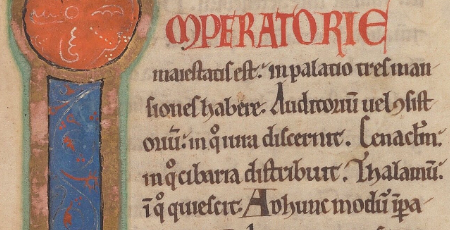 MPERATORIE
maiestatis est. in palatio tres man
siones habere. Auditoriū uel ꝯsist
oriū. in q̊ iura discernit. Cenaclm̄.
in q̊ cibaria distribuit. Thalamū.
ī q̊ quiescit. Ad hunc modū īpa